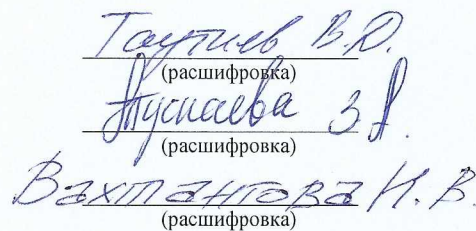 Таутиев В.Д.
(расшифровка)
Тускаева З.А.
(расшифровка)
Вахтангова Н.В.
(расшифровка)